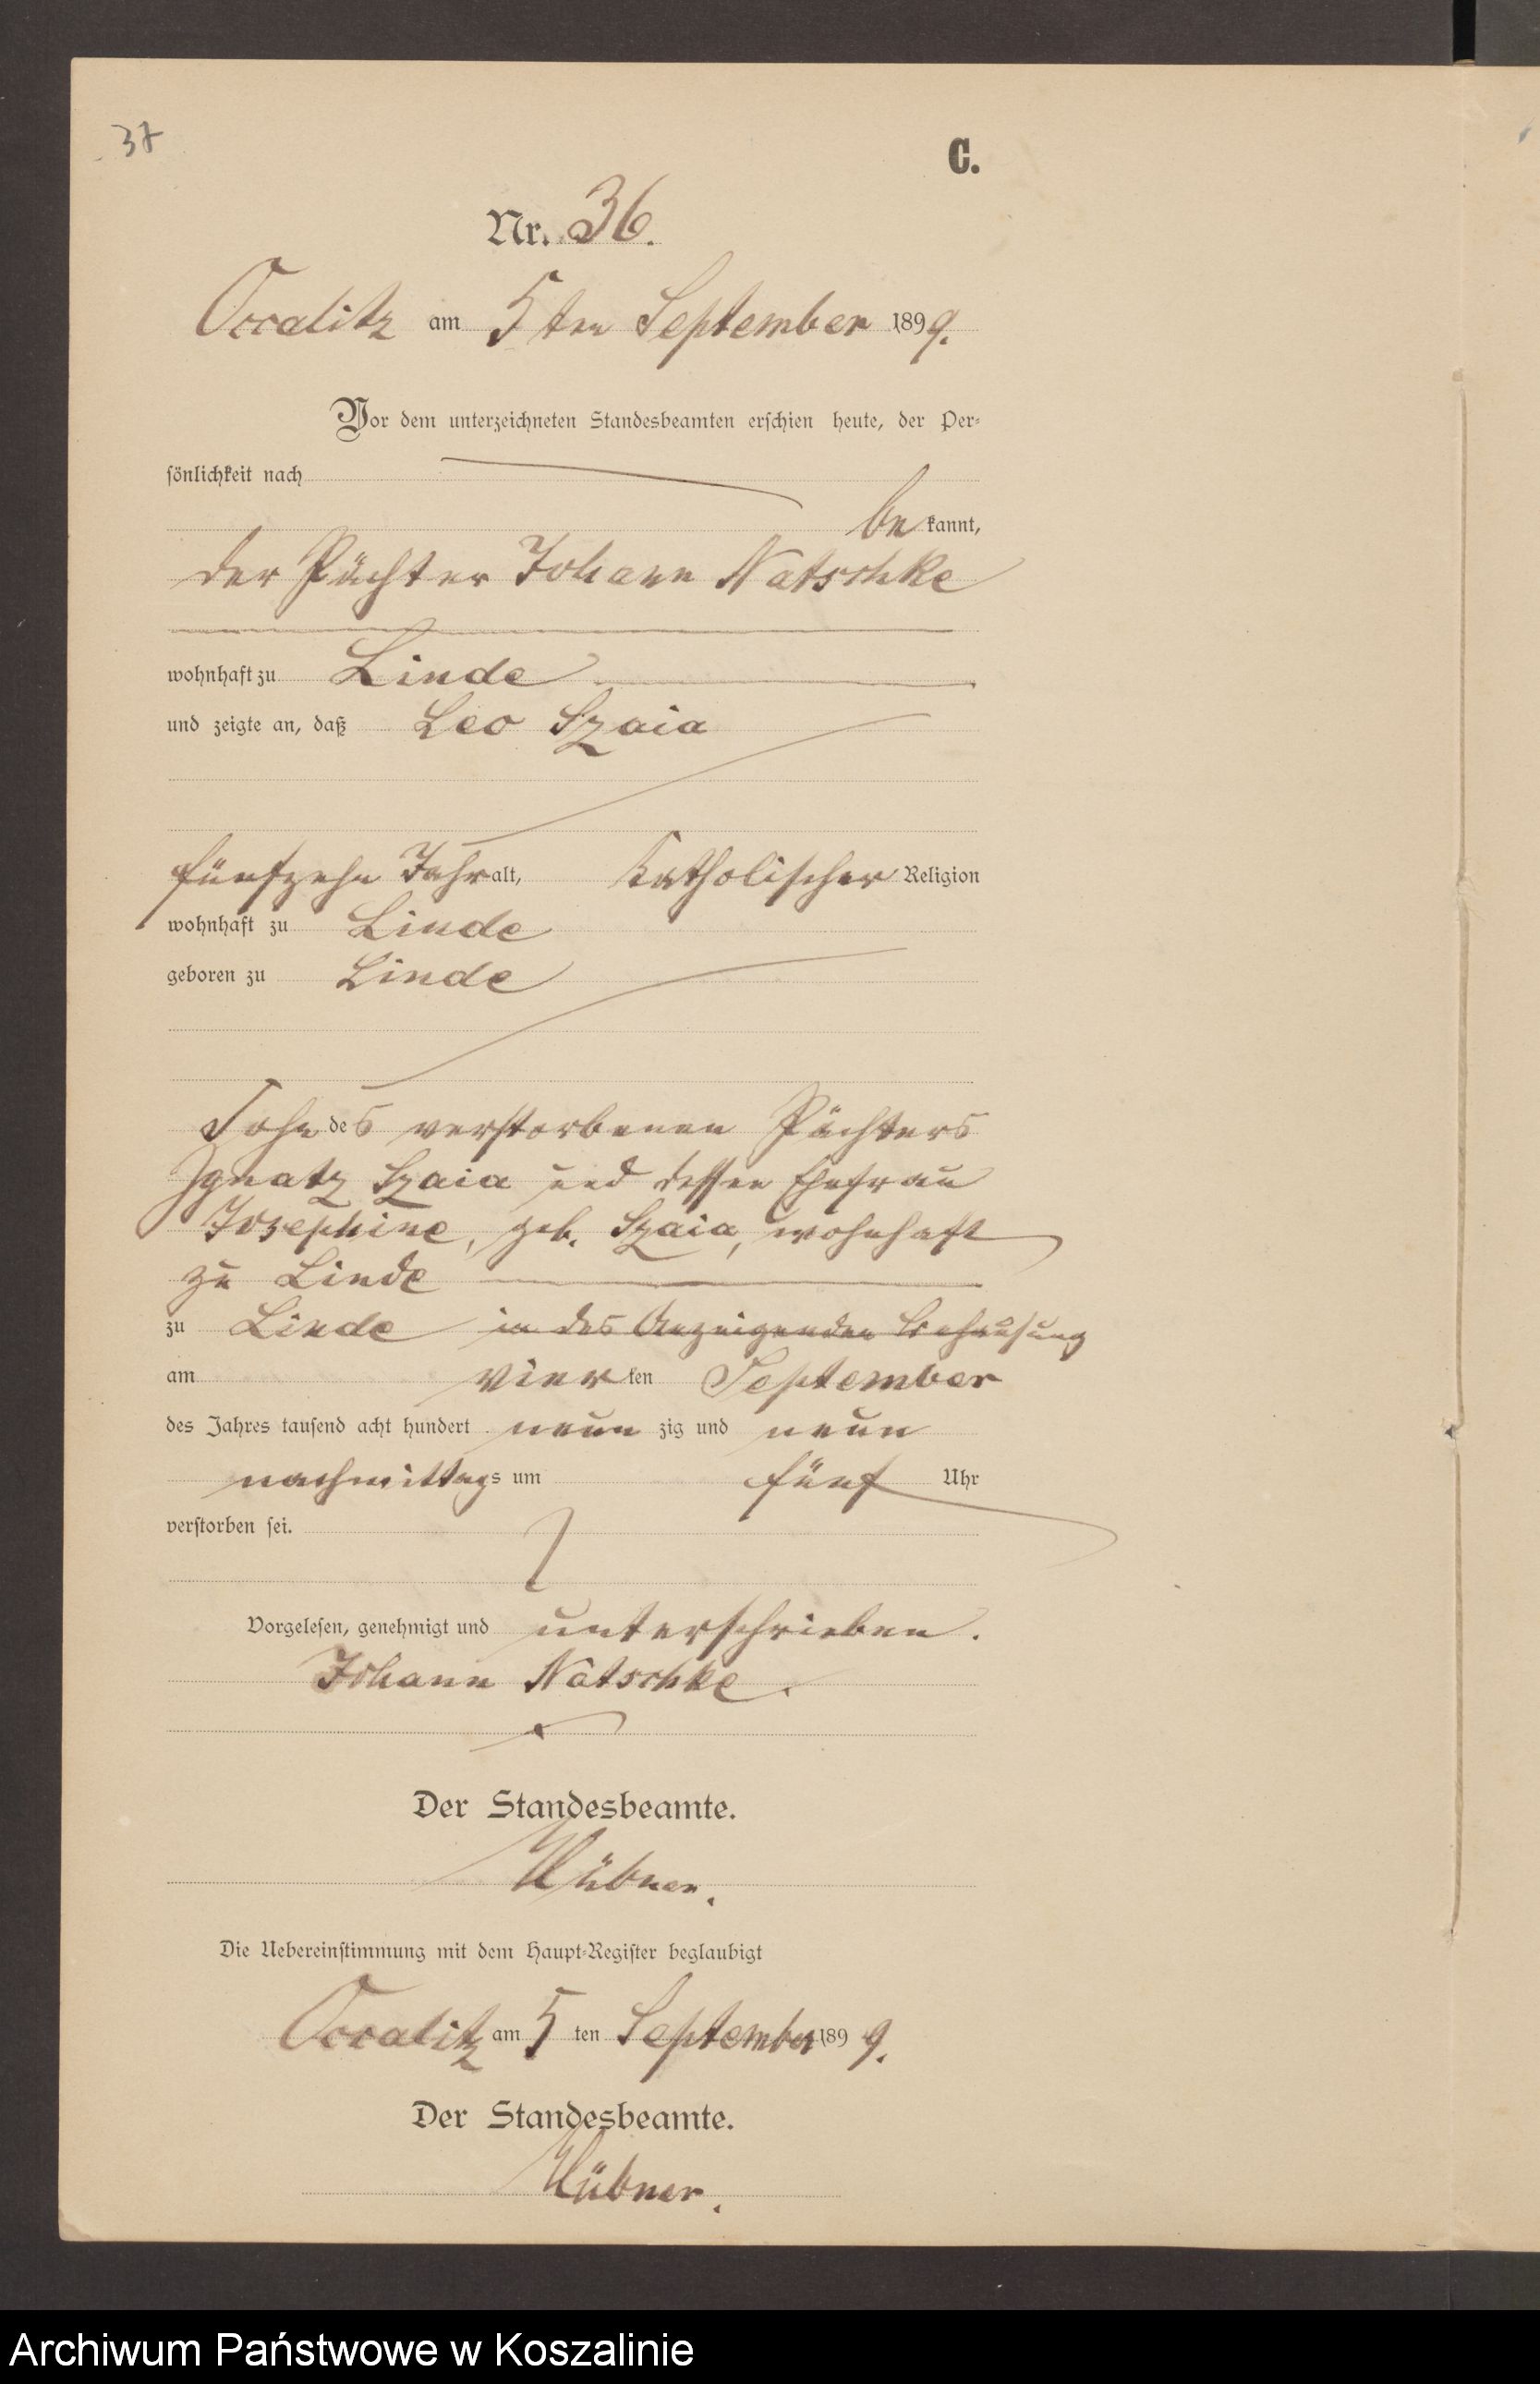 37
C.
Nr. 36.
Occalitz am 5ten September 1899.
Vor dem unterzeichneten Standesbeamten erschien heute, der Per-
sönlichkeit nach
bekannt,
der Pächter Johann Natschke
wohnhaft zu Linde
und zeigte an, daß Leo Szaia
fünfzehn Jahr alt, katholischer Religion
wohnhaft zu Linde
geboren zu Linde
Sohn des verstorbenen Pächters
Ignatz Szaia und dessen Ehefrau
Josephine, geb. Szaia, wohnhaft
zu Linde
zu Linde in des Anzeigenden Behausung
am vierten September
des Jahres tausend acht hundert neunzig und neun
nachmittags um fünf Uhr
verstorben sei.
Vorgelesen, genehmigt und unterschrieben.
Johann Natschke.
Der Standesbeamte.
Hübner.
Die Uebereinstimmung mit dem Haupt-Register beglaubigt
Occalitz am 5ten September 1899.
Der Standesbeamte.
Hübner.
Archiwum Państwowe w Koszalinie